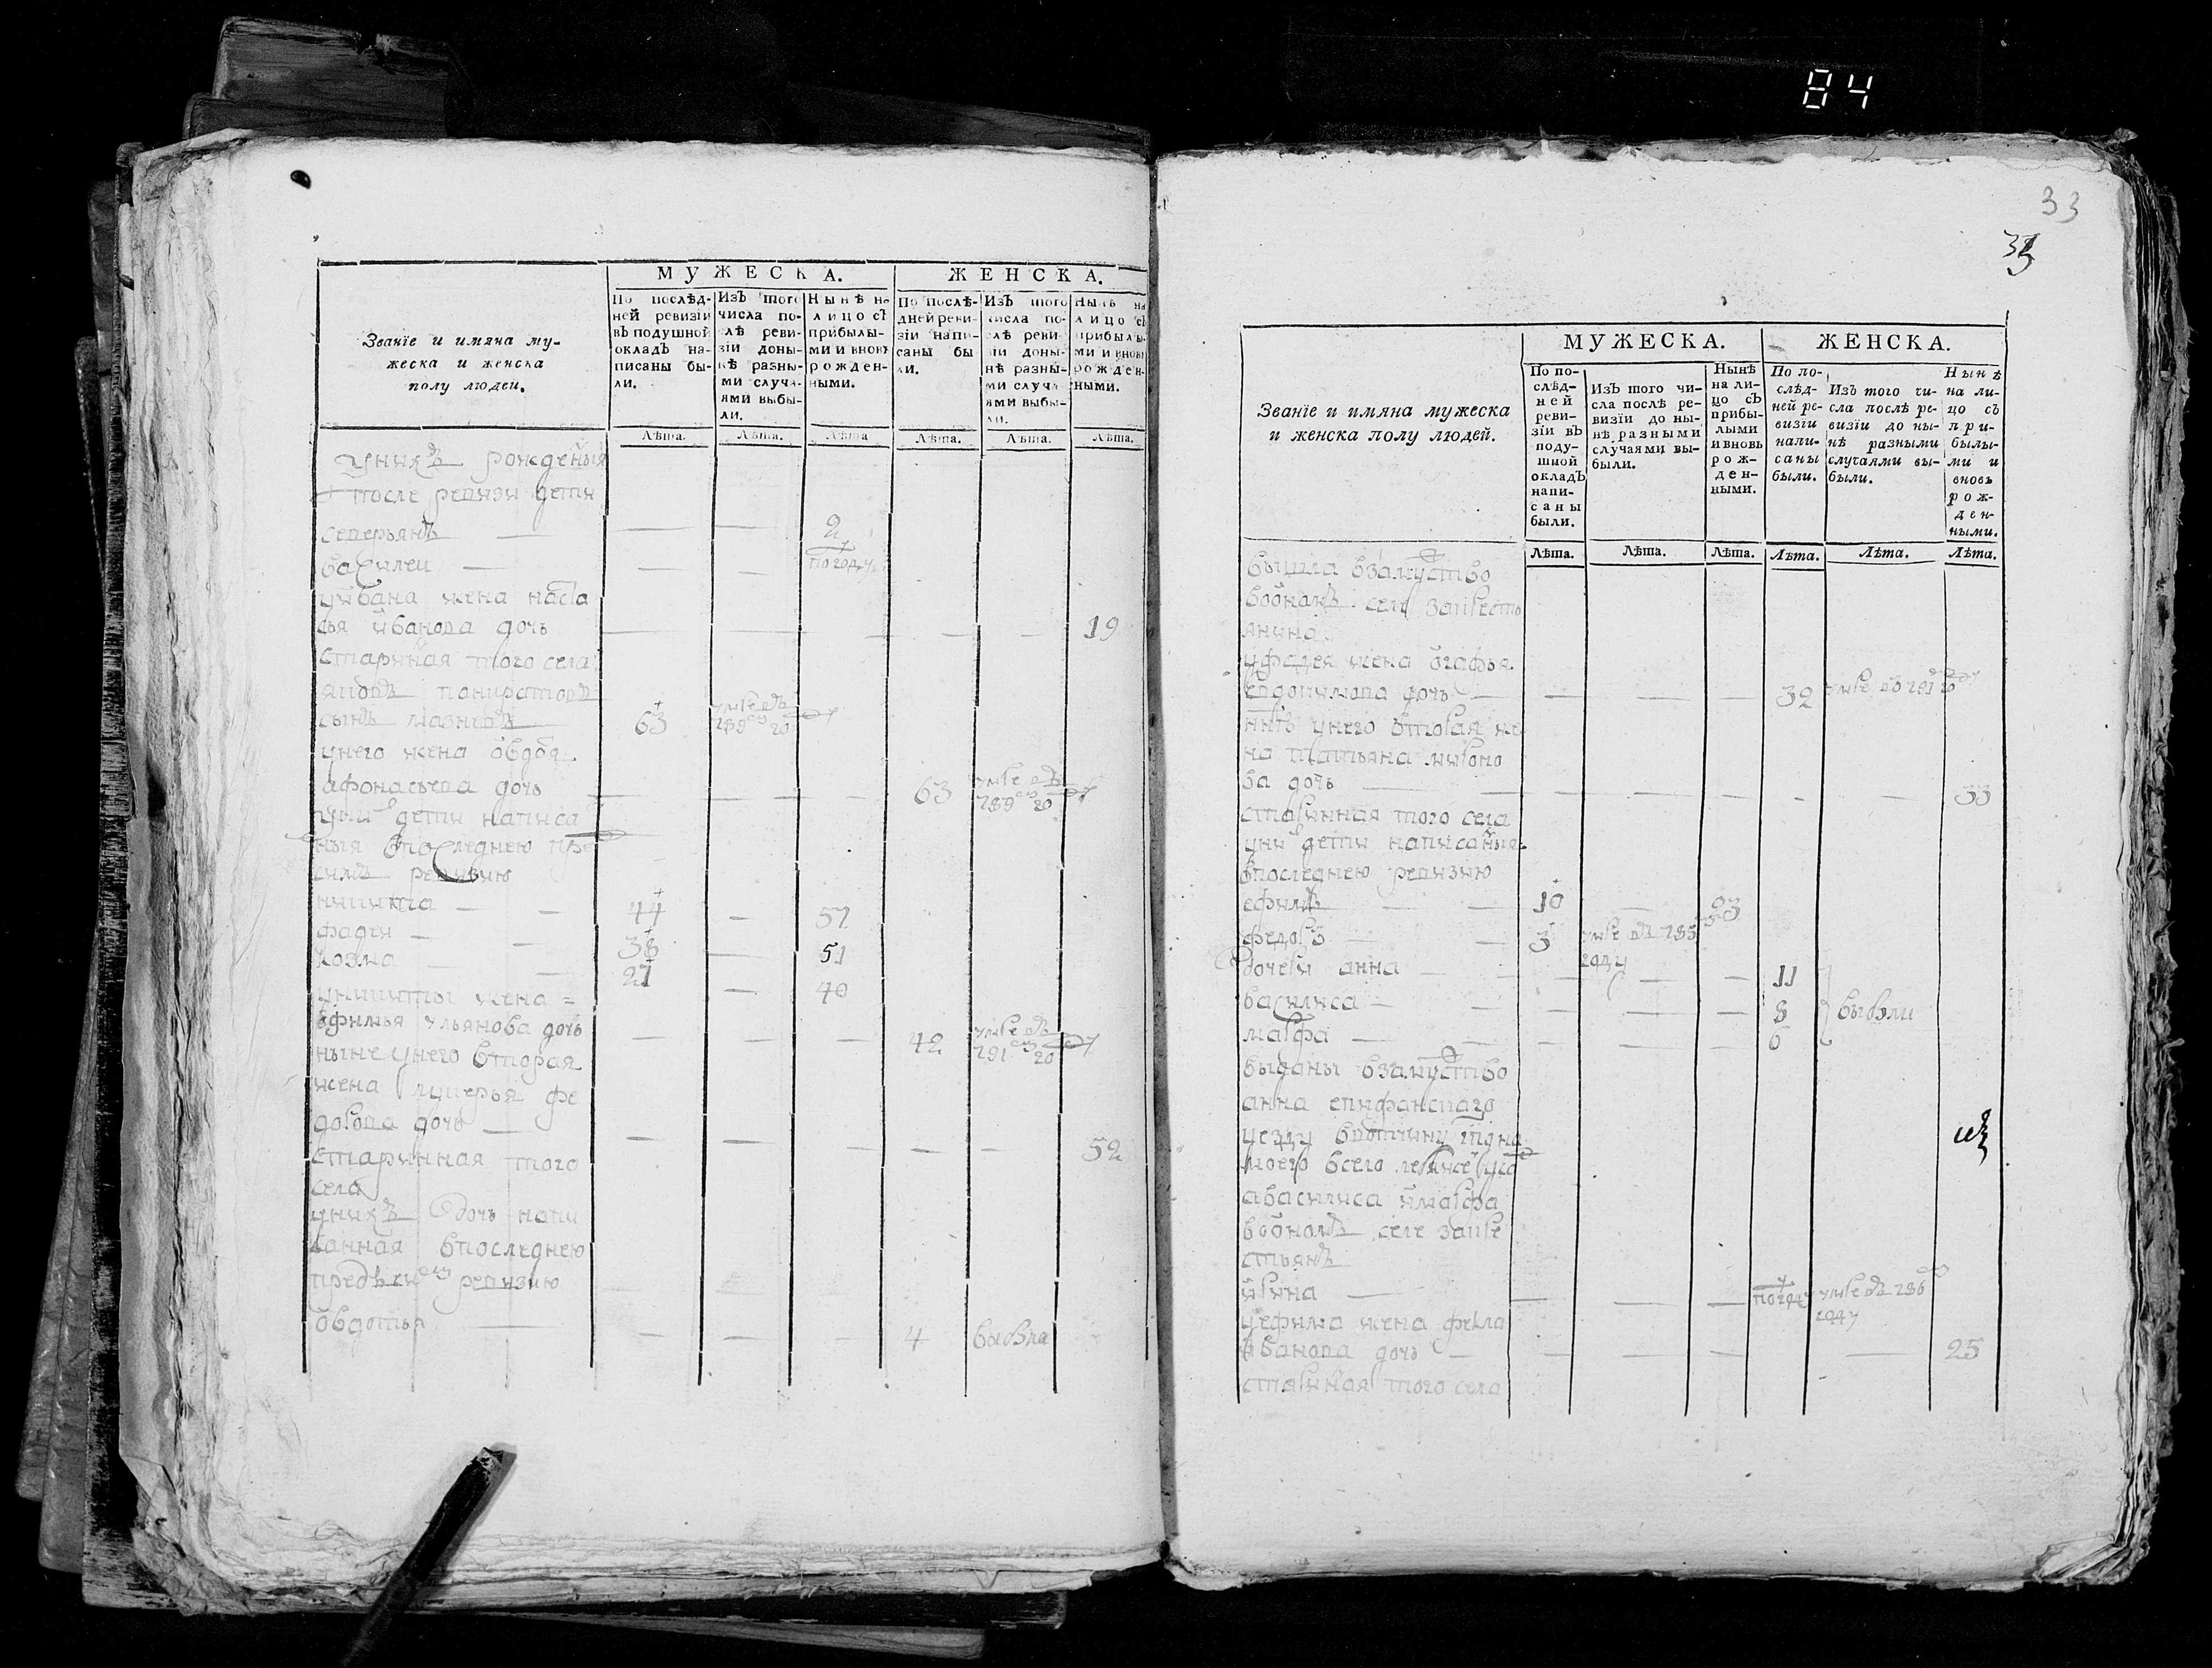 84
МУЖЕСКА. ЖЕНСКА.
Званїе и имяна му-
жеска и женска
полу людей.
По послѣд-
ней ревизїи
въ подушной
окладъ на-
писаны бы-
ли.
Изъ того
числа по-
слѣ реви-
зїи доны-
нѣ разны-
ми случа-
ями выбы-
ли.
Нынѣ на
лицо съ
прибылы-
ми и вновь
рожден-
ными.
По послѣ-
дней реви-
зїи напи-
саны бы-
ли.
Изъ того
числа по-
слѣ реви-
зїи доны-
нѣ разны-
ми случа-
ями выбы-
ли.
Нынѣ на
лицо съ
прибылы-
ми и вновь
рожден-
ными.
Лѣта. Лѣта. Лѣта. Лѣта. Лѣта. Лѣта.
уникъ рожденыя
после ревизи дети
северьянъ 2
василеи погоду
уивана жена наста
сья иванова дочь 19
старинная того села
сынъ 63 умре въ 789 20
унего жена овдотя
афонасьева дочь 63 умре въ 789 20
уних дети написа
ныя впоследнею пред
симъ ревизию
никита 44 57
фадея 38 51
козма 27 40
уникиты жена
ефимья ульянова дочь 42 умре въ 791 20
ныне унего вторая
жена лукерья фе
дорова дочь 52
старинная того
села
уникъ дочь напи
санная впоследнею
пред сим ревизию
овдотья 4 выбыла
33
МУЖЕСКА. ЖЕНСКА.
Званїе и имяна мужеска
и женска полу людей.
По по-
слѣд-
ней
реви-
зїи въ
поду-
шной
окладъ
напи-
саны
были.
Изъ того чи-
сла послѣ ре-
визїи до ны-
нѣ разными
случаями вы-
были.
Нынѣ
на ли-
цо съ
прибы-
лыми
и вновь
рож-
ден-
ными.
По по-
слѣд-
ней ре-
визїи
напи-
саны
были.
Изъ того чи-
сла послѣ ре-
визїи до ны-
нѣ разными
случаями вы-
были.
Нынѣ
на ли-
цо съ
при-
былы-
ми и
вновь
рож-
ден-
ными.
Лѣта. Лѣта. Лѣта. Лѣта. Лѣта. Лѣта.
вышла взамуство
водномъ селе закресть
янина
уфадея жена огафья
евдокимова дочь 32 умре въ 791 20
ныне унего вторая же
на татьяна мироно
ва дочь 33
старинная того села
уних дети написаныя
впоследнею ревизию
ефимъ 10 23
федоръ 3 умре въ 783 году
дочери анна 11
василиса 8 выбыли
марфа 6
выданы взамуство
анна епифанскаго
уезду ввотчину
моего всего
авасилиса имарфа
водномъ селе закре
стьянъ
ирина погоду умре въ 786 году
уефима жена фекла
иванова дочь 25
старинная того села